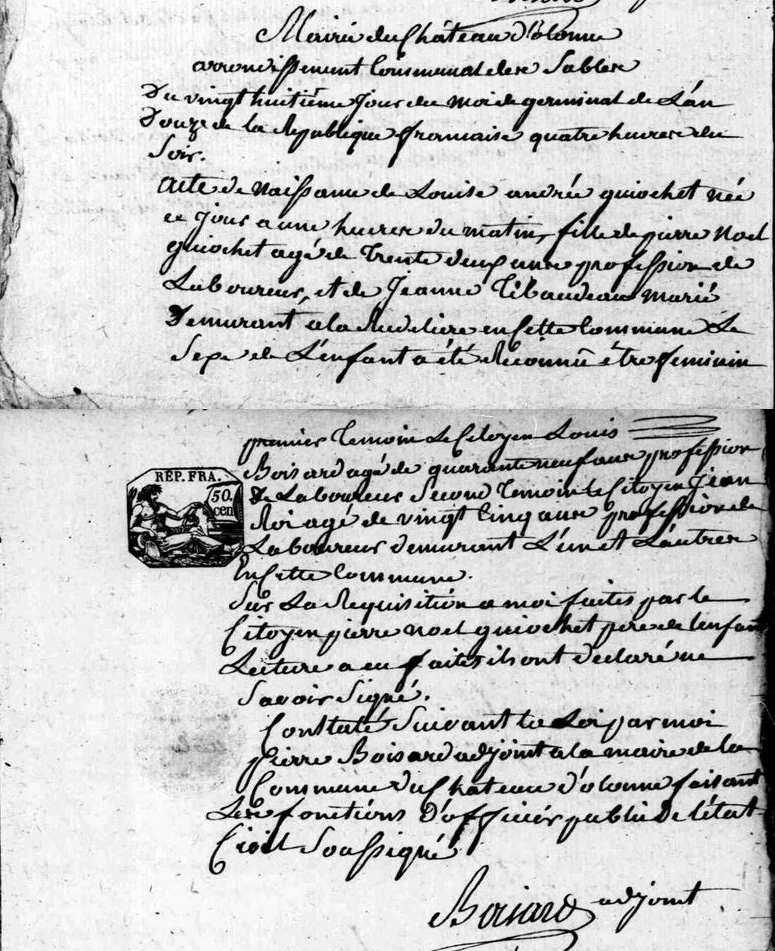 Mairie du Château d'olonne
arrondissement Communal des Sables
Du vingt huitiême Jour du moi de germinal de L'an
Douze de la Republique francaise quatre heures du
Soir.
acte de Naissance de Louise andrée guiochet née
ce Jour a une heures du matin, fille de pierre Noel
guiochet agé de Trente deux ans profession de
Laboureur, et de Jeanne Tibaudeau marié
Demurant a la en Cette Commune Le
Sexe de L'enfant a été Reconnû être feminin
premier Temoin Le Citoyen Louis
REP. FRA.
50.
cen
Boisard agé de quarante neuf ans profession
De Laboureur Second Temoin le Citoyen Jean
Roi agé de vingt Cinq ans profession de
Laboureur demurant L'un et L'autre
En Cette Commune.
Sur La Requisition a moi faites par le
Citoyen pierre noel guiochet pere de l'enfant
Lecture a eu faites ils ont declaré ne
Savoir Signé.
Constaté Suivant la Loi par moi
pierre Boisard adjoint a la mairie de la
Commune du Chateau d'olonne faisant
Les fonctions d'officier public de l'état
Civil Soussigné
Boisard adjoint